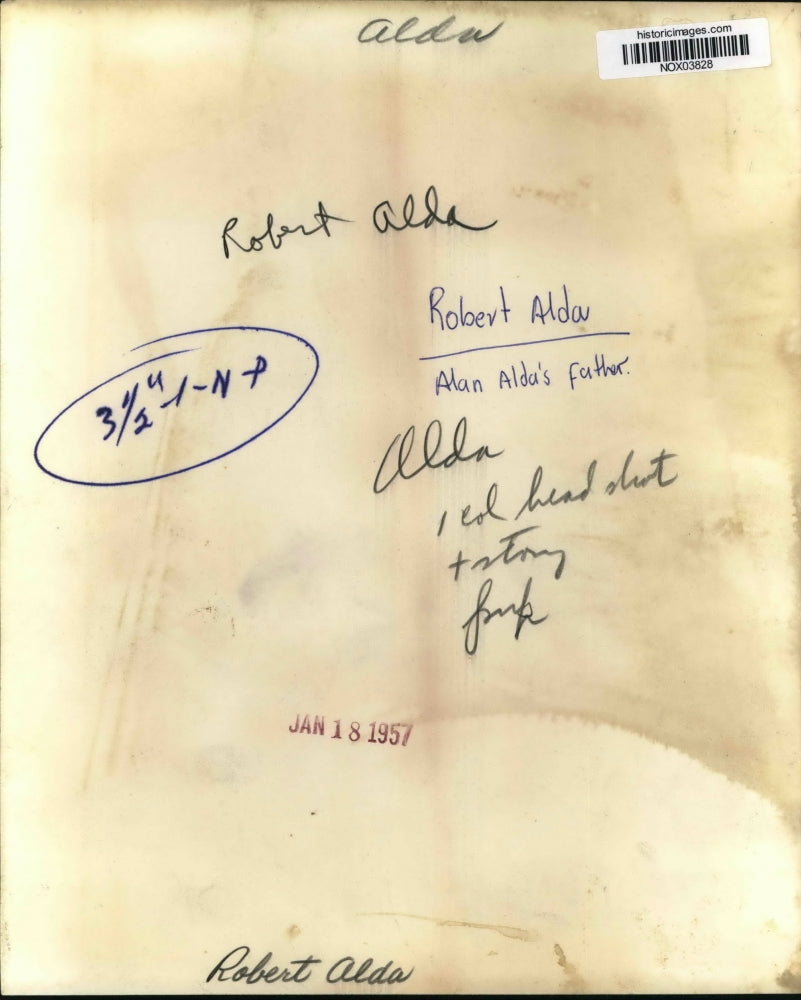 Alda
historicimages.com
NOX03828
Robert Alda
Robert Alda
Alan Alda's Father.
3 1/2" -1-N+P
Alda
1 col head shot
+ story
JAN 18 1957
Robert Alda